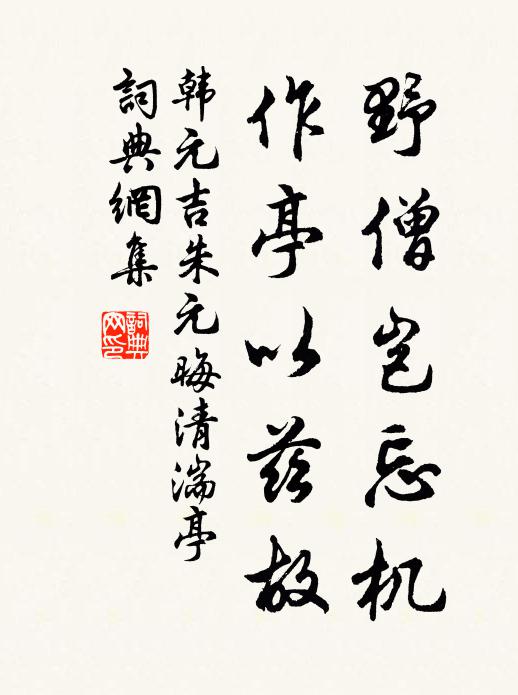 野僧岂忘机
作亭以兹故
韩元吉朱元晦清湍亭
詞典網集
詞典网印